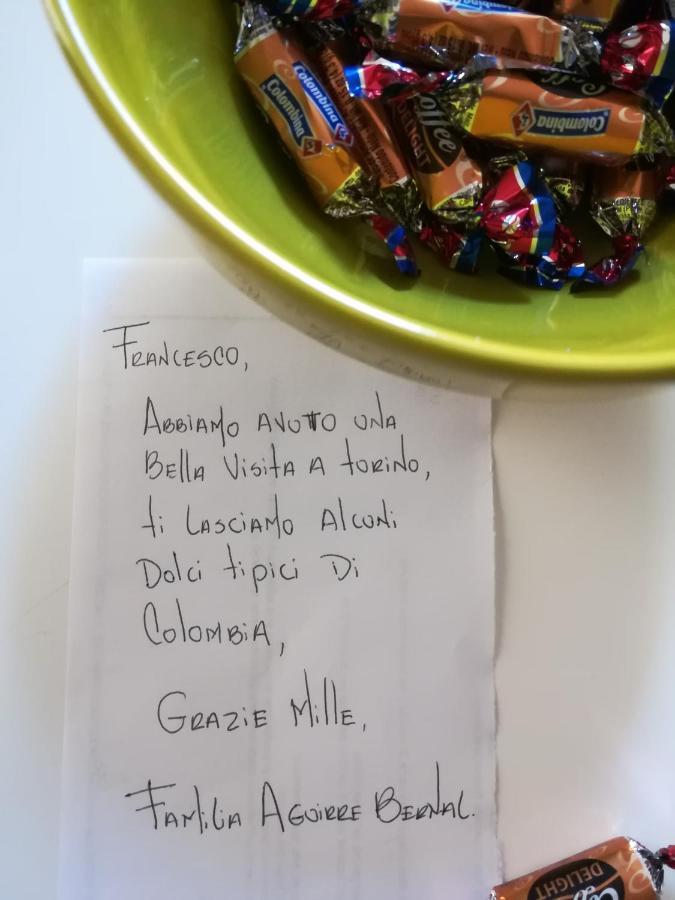 Colombina
Colombina
Coffee
DELIGHT
Colombina
FRANCESCO,
ABBIAMO AVUTTO UNA
BELLA VISITA A TORINO,
ti LASCIAMO ALCUNI
DOLCI tipici Di
COLOMBIA,
GRAZIE MILLE,
FAMILIA AGUIRRE BERNAL.
DELIGHT